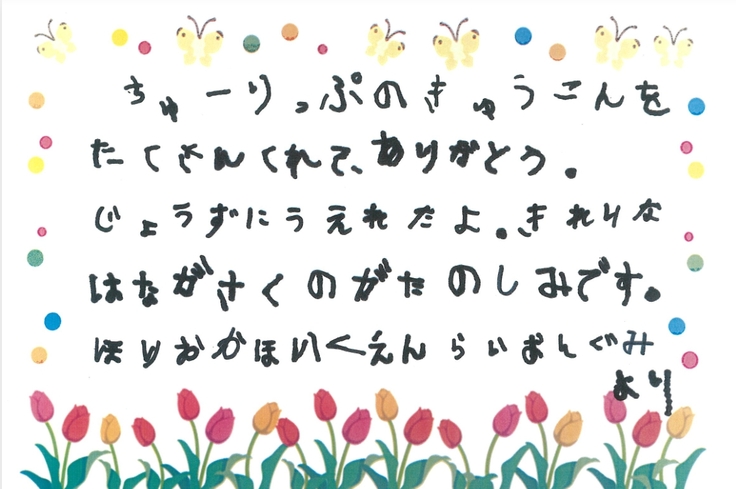 ちゅーりっぷのきゅうこんを
たくさんくれて、ありがとう。
じょうずにうえれたよ。きれいな
はながさくのがたのしみです。
ほりおかほいくえんらいおんぐみ
より